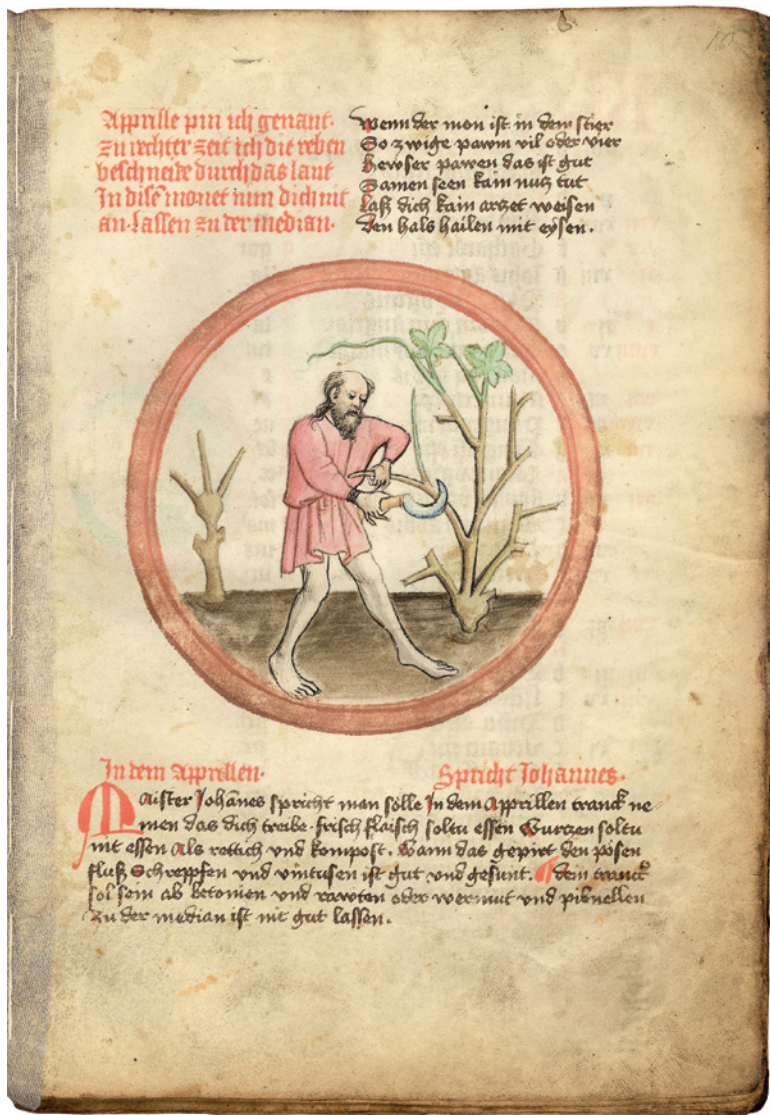 Apprille pin ich genant·
zu rechter zeit ich die reben
beschneide durch das lant
In disē monet nim dich nit
an·Lassen zu der median·
Wenn der mon ist in dem stier
So zwige pawm vil oder vier
Hewser pawen das ist gut
Samen seen kain nutz tut
Laß dich kain artzet weisen
den hals hailen mit eysen.
In dem Apprellen·
Spricht Johannes·
Maister Johānes spricht man sölle In dem Apprillen tranck ne
men das dich treibe·frisch flaisch soltu essen Wurczen soltu
nit essen Als rettich vnd kompost. Wann das gepirt den pösen
fluß Schreppfen vnd vintusen ist gut vnd gesunt. dem tranck
sol sein ab betonien vnd rawten oder wermut vnd pibnellen
zu der median ist nit gut lassen.